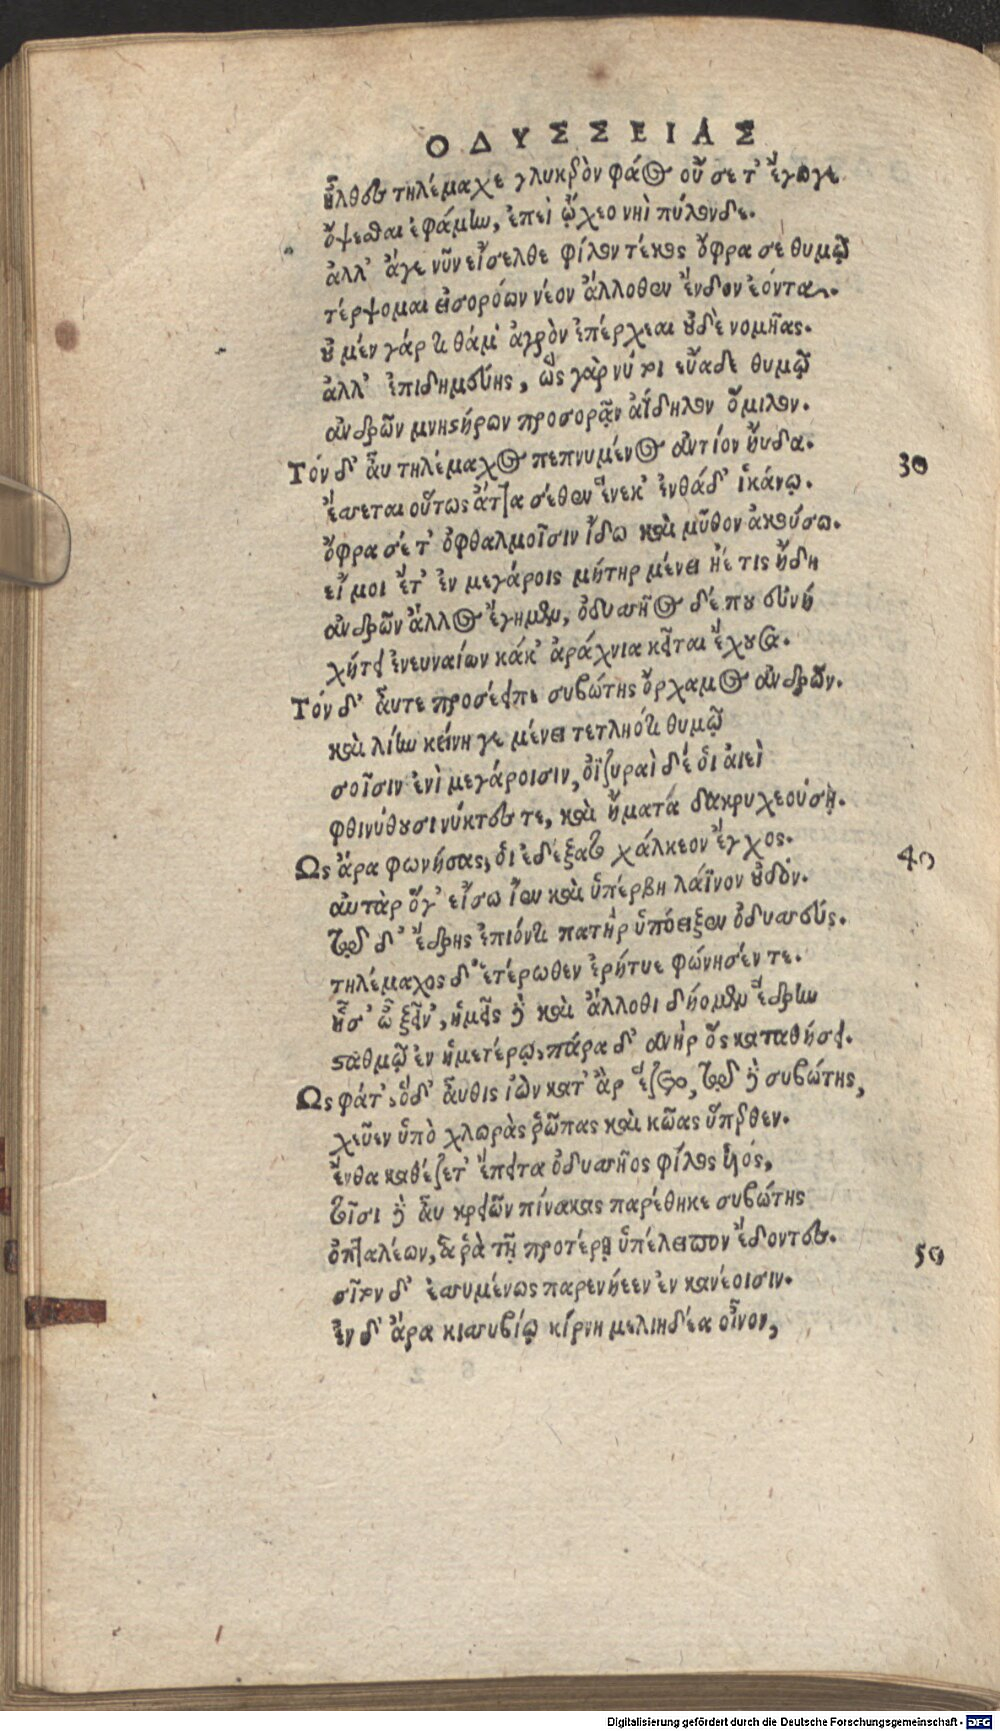 ΟΔΥΣΣΕΙΑΣ
ἦλθες τηλέμαχε γλυκερὸν φάος οὔ σε τ' ἔγωγε
ὄψεσθαι ἐφάμην, ἐπεὶ ᾤχεο νηῒ πύλονδε.
ἀλλ' ἄγε νῦν εἴσελθε φίλον τέκος ὄφρα σε θυμῷ
τέρψομαι εἰσορόων νέον ἄλλοθεν ἔνδον ἐόντα.
οὐ μέν γάρ τι θάμ' ἀγρὸν ἐπέρχεαι οὐδὲ νομῆας.
ἀλλ' ἐπιδημεύεις, ὣς γὰρ νύ τοι εὔαδε θυμῷ
ἀνδρῶν μνηστήρων προσορᾷν ἀΐδηλον ὅμιλον.
Τόν δ' αὖ τηλέμαχος πεπνυμένος ἀντίον ηὔδα.
30
ἔσσεται οὕτως ἄττα σέθεν ἕνεκ' ἐνθάδ' ἱκάνω.
ὄφρα σέ τ' ὀφθαλμοῖσιν ἴδω καὶ μῦθον ἀκούσω.
εἴ μοι ἔτ' ἐν μεγάροις μήτηρ μένει ἠέ τις ἤδη
ἀνδρῶν ἄλλος ἔγημεν, ὀδυσσῆος δέ που εὐνή
χήτει ἐνευναίων κάκ' ἀράχνια κεῖται ἔχουσα.
Τόν δ' αὖτε προσέειπε συβώτης ὄρχαμος ἀνδρῶν.
καὶ λίην κείνη γε μένει τετληότι θυμῷ
σοῖσιν ἐνὶ μεγάροισιν, ὀϊζυραὶ δέ οἱ αἰεὶ
φθινύθουσι νύκτες τε, καὶ ἤματα δακρυχεούσῃ.
Ως ἄρα φωνήσας, οἱ ἐδέξατο χάλκεον ἔγχος.
40
αὐτὰρ ὅγ' εἴσω ἴεν καὶ ὑπέρβη λάϊνον οὐδόν.
τῷ δ' ἕδρης ἐπιόντι πατὴρ ὑπόειξεν ὀδυσσεύς.
τηλέμαχος δ' ἑτέρωθεν ἐρήτυε φώνησέν τε.
ἧσ' ὦ ξεῖν', ἡμεῖς δὲ καὶ ἄλλοθι δήομεν ἕδρην
σταθμῷ ἐν ἡμετέρῳ, πάρα δ' ἀνὴρ ὃς καταθήσει.
Ως φάτ', ὁ δ' αὖθις ἰὼν κατ' ἂρ ἕζετο, τῷ δὲ συβώτης,
χεῦεν ὑπὸ χλωρὰς ῥῶπας καὶ κῶας ὕπερθεν.
ἔνθα καθέζετ' ἔπειτα ὀδυσσῆος φίλος υἱός,
τοῖσι δὲ αὖ κρειῶν πίνακας παρέθηκε συβώτης
ὀπταλέων, ἅ ῥὰ τῇ προτέρῃ ὑπέλειπον ἔδοντες.
50
σῖτον δ' ἐσσυμένως παρενήεεν ἐν κανέοισιν.
ἐν δ' ἄρα κισσυβίῳ κίρνη μελιηδέα οἶνον,
Digitalisierung gefördert durch die Deutsche Forschungsgemeinschaft - DFG